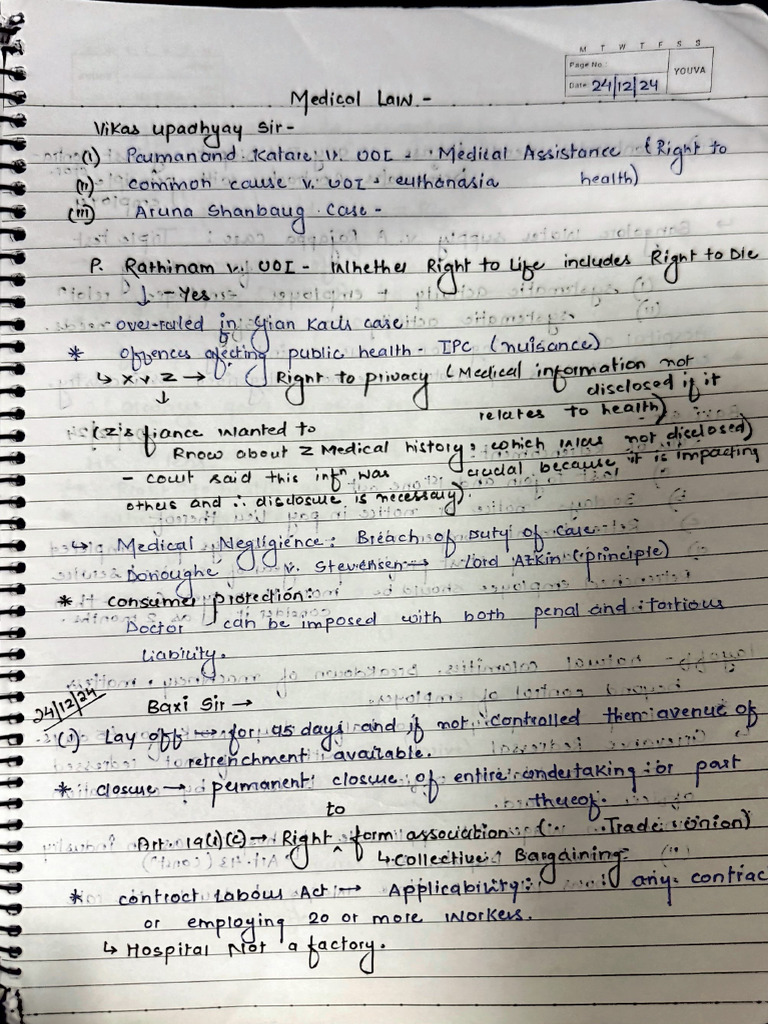 M T W T F S S
Page No.:
YOUVA
Date: 24/12/24
Medical Law -
Vikas Upadhyay Sir -
(i) Parmanand Katare v. UOI - Medical Assistance (Right to
(ii) Common Cause v. UOI - euthanasia health)
(iii) Aruna Shanbaug Case -
P. Rathinam v. UOI - Whether Right to Life includes Right to Die
↓ - Yes
over-ruled in Gian Kaur case
* Offences affecting public health - IPC (nuisance)
↳ X v. Z → Right to privacy (Medical information not
↓ disclosed if it
relates to health)
(Z's fiance wanted to
know about Z Medical history, which was not disclosed)
- court said this infⁿ was crucial because it is impacting
others and ∴ disclosure is necessary).
↳ Medical Negligience: Breach of Duty of Care
Donoughe v. Stevensen → Lord Atkin (principle)
* consumer protection:
Doctor can be imposed with both penal and tortious
liability.
24/12/24
Baxi Sir →
(i) Lay off → for 45 days and if not controlled then avenue of
retrenchment available.
* closure → permanent closure of entire undertaking or part
thereof.
to
Art. 19(1)(c) → Right ^ form association ( Trade Union)
↳ Collective Bargaining
* Contract Labour Act → Applicability: any contrac
or employing 20 or more workers.
↳ Hospital Not a factory.